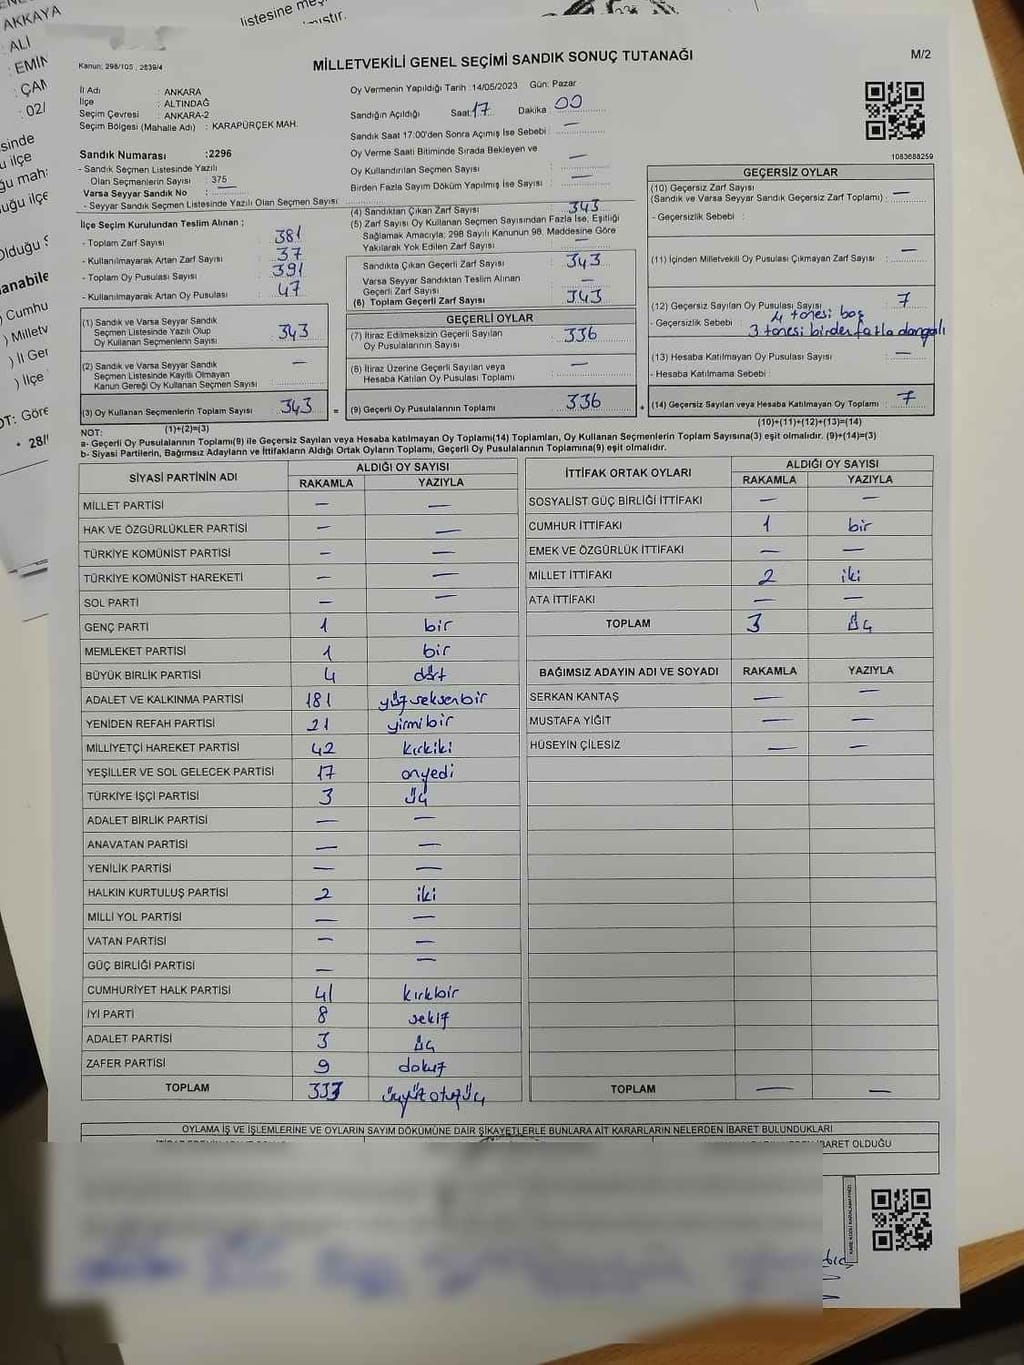 AKKAYA
ALİ
listesine
Kanun: 298/105 , 2839/4
MİLLETVEKİLİ GENEL SEÇİMİ SANDIK SONUÇ TUTANAĞI
M/2
İl Adı : ANKARA
İlçe : ALTINDAĞ
Seçim Çevresi : ANKARA-2
Seçim Bölgesi (Mahalle Adı) : KARAPÜRÇEK MAH.
Oy Vermenin Yapıldığı Tarih :14/05/2023 Gün: Pazar
Sandığın Açıldığı Saat: 17 Dakika 00
Sandık Saat 17:00'den Sonra Açımış İse Sebebi : —
Oy Verme Saati Bitiminde Sırada Bekleyen ve
Oy Kullandırılan Seçmen Sayısı : —
Birden Fazla Sayım Döküm Yapılmış İSe Sayısı : —
1083688259
Sandık Numarası :2296
- Sandık Seçmen Listesinde Yazılı
Olan Seçmenlerin Sayısı : 375
Varsa Seyyar Sandık No : —
- Seyyar Sandık Seçmen Listesinde Yazılı Olan Seçmen Sayısı :
İlçe Seçim Kurulundan Teslim Alınan ;
- Toplam Zarf Sayısı : 381
- Kullanılmayarak Artan Zarf Sayısı : 37
- Toplam Oy Pusulası Sayısı : 391
- Kullanılmayarak Artan Oy Pusulası : 47
(1) Sandık ve Varsa Seyyar Sandık
Seçmen Listesinde Yazılı Olup
Oy Kullanan Seçmenlerin Sayısı : 343
(2) Sandık ve Varsa Seyyar Sandık
Seçmen Listesinde Kayıtlı Olmayan
Kanun Gereği Oy Kullanan Seçmen Sayısı : —
(3) Oy Kullanan Seçmenlerin Toplam Sayısı : 343 =
(4) Sandıktan Çıkan Zarf Sayısı : 343
(5) Zarf Sayısı Oy Kullanan Seçmen Sayısından Fazla İse, Eşitliği
Sağlamak Amacıyla; 298 Sayılı Kanunun 98. Maddesine Göre
Yakılarak Yok Edilen Zarf Sayısı : —
Sandıkta Çıkan Geçerli Zarf Sayısı : 343
Varsa Seyyar Sandıktan Teslim Alınan
Geçerli Zarf Sayısı : —
(6) Toplam Geçerli Zarf Sayısı : 343
GEÇERLİ OYLAR
(7) İtiraz Edilmeksizin Geçerli Sayılan
Oy Pusulalarının Sayısı : 336
(8) İtiraz Üzerine Geçerli Sayılan veya
Hesaba Katılan Oy Pusulası Toplamı : —
(9) Geçerli Oy Pusulalarının Toplamı : 336 +
GEÇERSİZ OYLAR
(10) Geçersiz Zarf Sayısı : —
(Sandık ve Varsa Seyyar Sandık Geçersiz Zarf Toplamı)
- Geçersizlik Sebebi :
(11) İçinden Milletvekili Oy Pusulası Çıkmayan Zarf Sayısı : —
(12) Geçersiz Sayılan Oy Pusulası Sayısı : 7
- Geçersizlik Sebebi : 4 tanesi boş
3 tanesi birden fazla damgalı
(13) Hesaba Katılmayan Oy Pusulası Sayısı : —
- Hesaba Katılmama Sebebi :
(14) Geçersiz Sayılan veya Hesaba Katılmayan Oy Toplamı : 7
NOT: (1)+(2)=(3) (10)+(11)+(12)+(13)=(14)
a- Geçerli Oy Pusulalarının Toplamı(9) ile Geçersiz Sayılan veya Hesaba katılmayan Oy Toplamı(14) Toplamları, Oy Kullanan Seçmenlerin Toplam Sayısına(3) eşit olmalıdır. (9)+(14)=(3)
b- Siyasi Partilerin, Bağımsız Adayların ve İttifakların Aldığı Ortak Oyların Toplamı, Geçerli Oy Pusulalarının Toplamına(9) eşit olmalıdır.
SİYASİ PARTİNİN ADI ALDIĞI OY SAYISI
RAKAMLA YAZIYLA
MİLLET PARTİSİ — —
HAK VE ÖZGÜRLÜKLER PARTİSİ — —
TÜRKİYE KOMÜNİST PARTİSİ — —
TÜRKİYE KOMÜNİST HAREKETİ — —
SOL PARTİ — —
GENÇ PARTİ 1 bir
MEMLEKET PARTİSİ 1 bir
BÜYÜK BİRLİK PARTİSİ 4 dört
ADALET VE KALKINMA PARTİSİ 181 yüzseksenbir
YENİDEN REFAH PARTİSİ 21 yirmibir
MİLLİYETÇİ HAREKET PARTİSİ 42 kırkiki
YEŞİLLER VE SOL GELECEK PARTİSİ 17 onyedi
TÜRKİYE İŞÇİ PARTİSİ 3 üç
ADALET BİRLİK PARTİSİ — —
ANAVATAN PARTİSİ — —
YENİLİK PARTİSİ — —
HALKIN KURTULUŞ PARTİSİ 2 iki
MİLLİ YOL PARTİSİ — —
VATAN PARTİSİ — —
GÜÇ BİRLİĞİ PARTİSİ — —
CUMHURİYET HALK PARTİSİ 41 kırkbir
İYİ PARTİ 8 sekiz
ADALET PARTİSİ 3 üç
ZAFER PARTİSİ 9 dokuz
TOPLAM 333 üçyüzotuzüç
İTTİFAK ORTAK OYLARI ALDIĞI OY SAYISI
RAKAMLA YAZIYLA
SOSYALİST GÜÇ BİRLİĞİ İTTİFAKI — —
CUMHUR İTTİFAKI 1 bir
EMEK VE ÖZGÜRLÜK İTTİFAKI — —
MİLLET İTTİFAKI 2 iki
ATA İTTİFAKI — —
TOPLAM 3 üç
BAĞIMSIZ ADAYIN ADI VE SOYADI RAKAMLA YAZIYLA
SERKAN KANTAŞ — —
MUSTAFA YİĞİT — —
HÜSEYİN ÇİLESİZ — —
TOPLAM — —
OYLAMA İŞ VE İŞLEMLERİNE VE OYLARIN SAYIM DÖKÜMÜNE DAİR ŞİKAYETLERLE BUNLARA AİT KARARLARIN NELERDEN İBARET BULUNDUKLARI
İBARET OLDUĞU